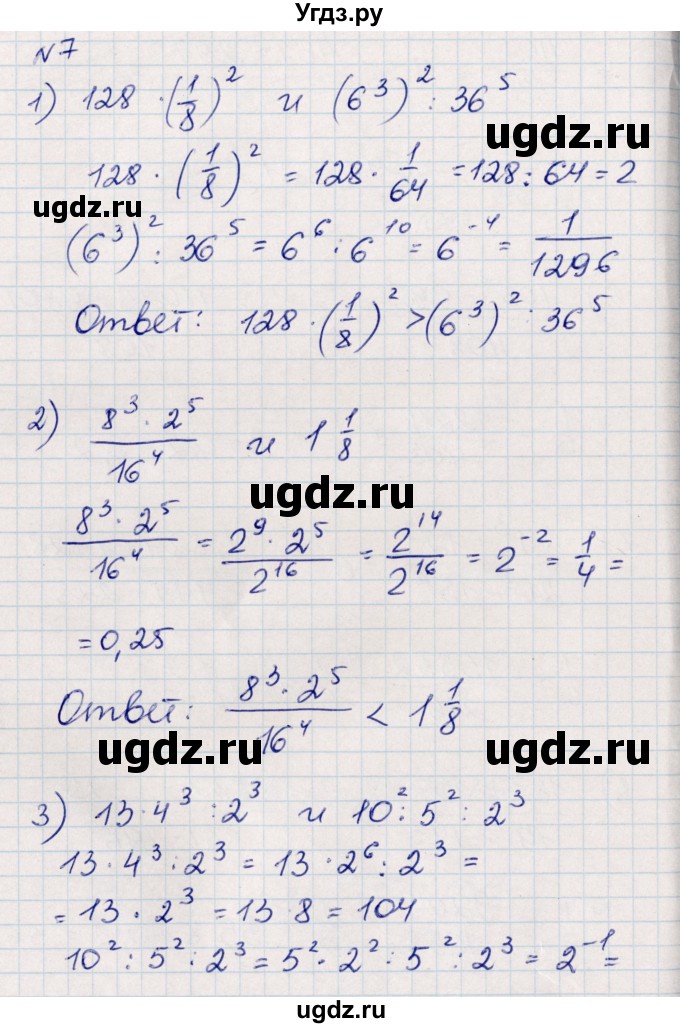 Угдз.ру
N7
1) 128 · (1/8)² и (6³)² : 36⁵
ugdz.ru
128 · (1/8)² = 128 · 1/64 = 128 : 64 = 2
ugdz.ru
(6³)² : 36⁵ = 6⁶ : 6¹⁰ = 6⁻⁴ = 1/1296
Ответ: 128 · (1/8)² > (6³)² : 36⁵
ugdz.ru
2) 8³ · 2⁵/16⁴ и 1 1/8
ugdz.ru
8³ · 2⁵/16⁴ = 2⁹ · 2⁵/2¹⁶ = 2¹⁴/2¹⁶ = 2⁻² = 1/4 =
= 0,25
Ответ: 8³ · 2⁵/16⁴ < 1 1/8
ugdz.ru
ugdz.ru
3) 13 · 4³ : 2³ и 10² : 5² : 2³
13 · 4³ : 2³ = 13 · 2⁶ : 2³ =
= 13 · 2³ = 13 · 8 = 104
10² : 5² : 2³ = 5² · 2² : 5² : 2³ = 2⁻¹ =
ugdz.ru